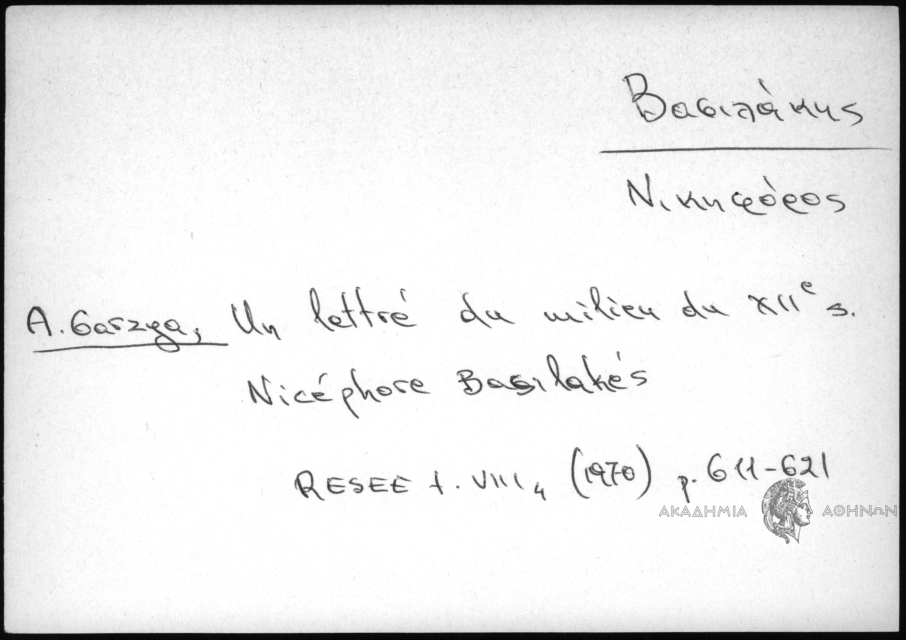 Βασιλάκης
Νικηφόρος
A. Garzya, Un lettré du milieu du XIIe s.
Nicéphore Basilakés
RESEE t. VIII4 (1970) p. 611-621
ΑΚΑΔΗΜΙΑ ΑΘΗΝΩΝ